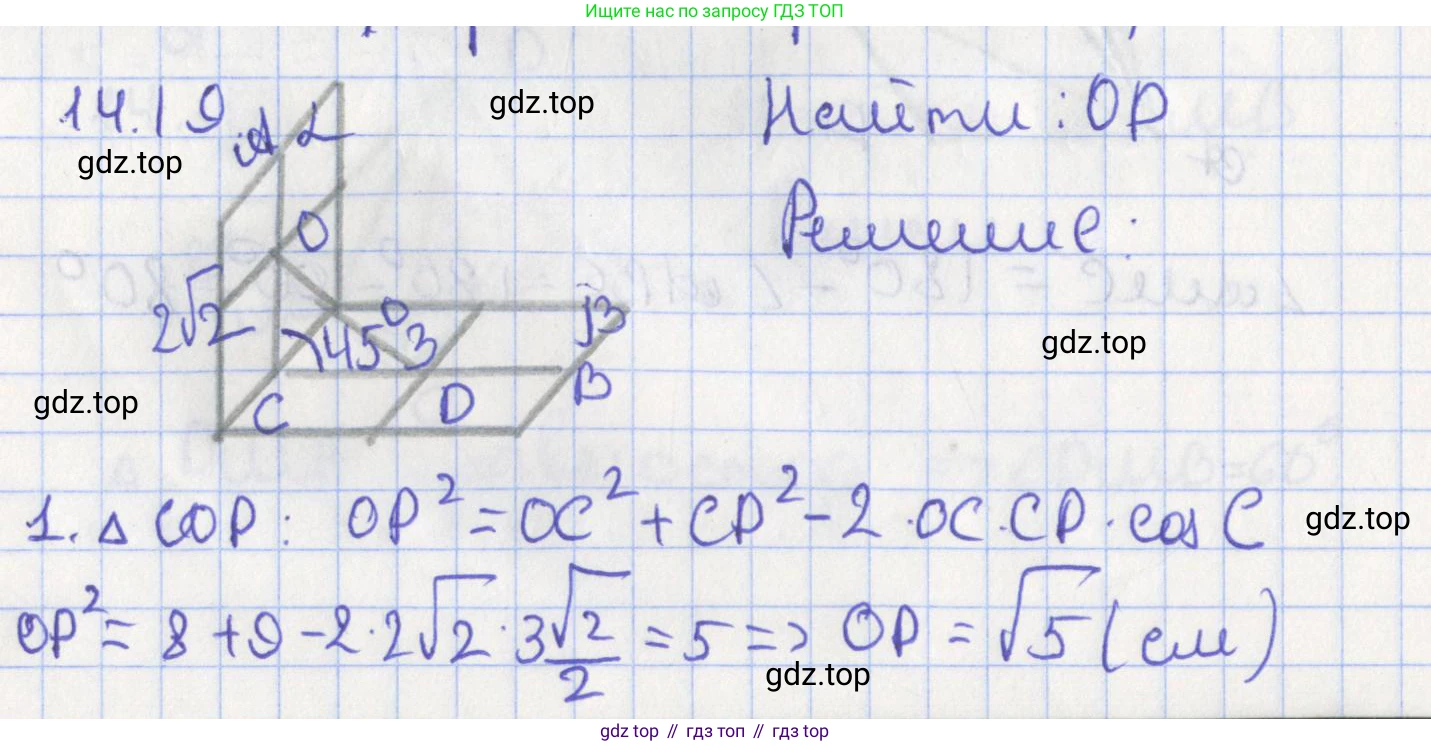 Ищите нас по запросу ГДЗ ТОП
14.19
gdz.top
Найти: OD
gdz.top
A α
O
Решение:
2√2
45° 3
β
gdz.top
gdz.top
C
D
B
1. △ COD: OD² = OC² + CD² - 2 · OC · CD · cos C
gdz.top
OD² = 8 + 9 - 2 · 2√2 · 3√2/2 = 5 => OD = √5 (см)
gdz.top
gdz.top // гдз топ // gdz.top